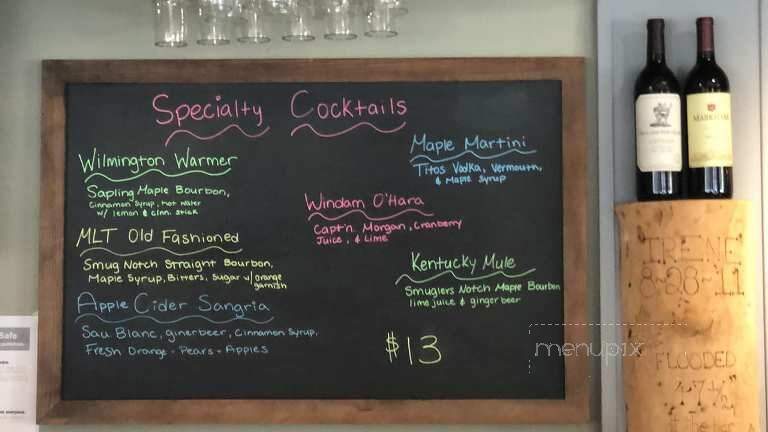 Specialty Cocktails
Wilmington Warmer
Sapling Maple Bourbon,
Cinnamon Syrup, hot water
w/ lemon & cinn. stick
MLT Old Fashioned
Smug Notch Straight Bourbon,
Maple Syrup, Bitters, Sugar w/ orange
garnish
Apple Cider Sangria
Sau Blanc, ginerbeer, Cinnamon Syrup,
Fresh Orange - Pears - Apples
Windam O'Hara
Capt'n Morgan, Cranberry
Juice, & Lime
Maple Martini
Titos Vodka, Vermouth,
& Maple Syrup
Kentucky Mule
Smuglers Notch Maple Bourbon
lime juice & ginger beer
$13
menupix
IRENE
8-28-11
FLOODED
Safe